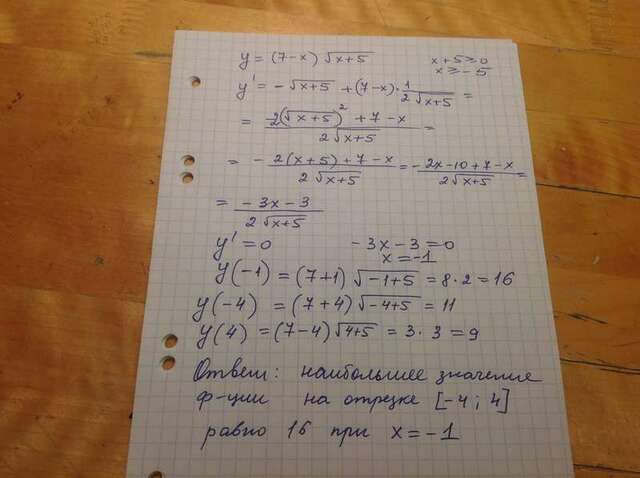 y = (7-x) √(x+5)     x+5 ≥ 0
x ≥ -5
y' = -√(x+5) + (7-x) · 1/(2√(x+5)) =
= (2(√(x+5))² + 7 - x)/(2√(x+5)) =
= - (2(x+5) + 7 - x)/(2√(x+5)) = (-2x-10+7-x)/(2√(x+5)) =
= (-3x-3)/(2√(x+5))
y' = 0     -3x-3=0
x=-1
y(-1) = (7+1) √(-1+5) = 8·2 = 16
y(-4) = (7+4) √(-4+5) = 11
y(4) = (7-4) √(4+5) = 3·3 = 9
Ответ: наибольшее значение
ф-ции на отрезке [-4; 4]
равно 16 при x=-1